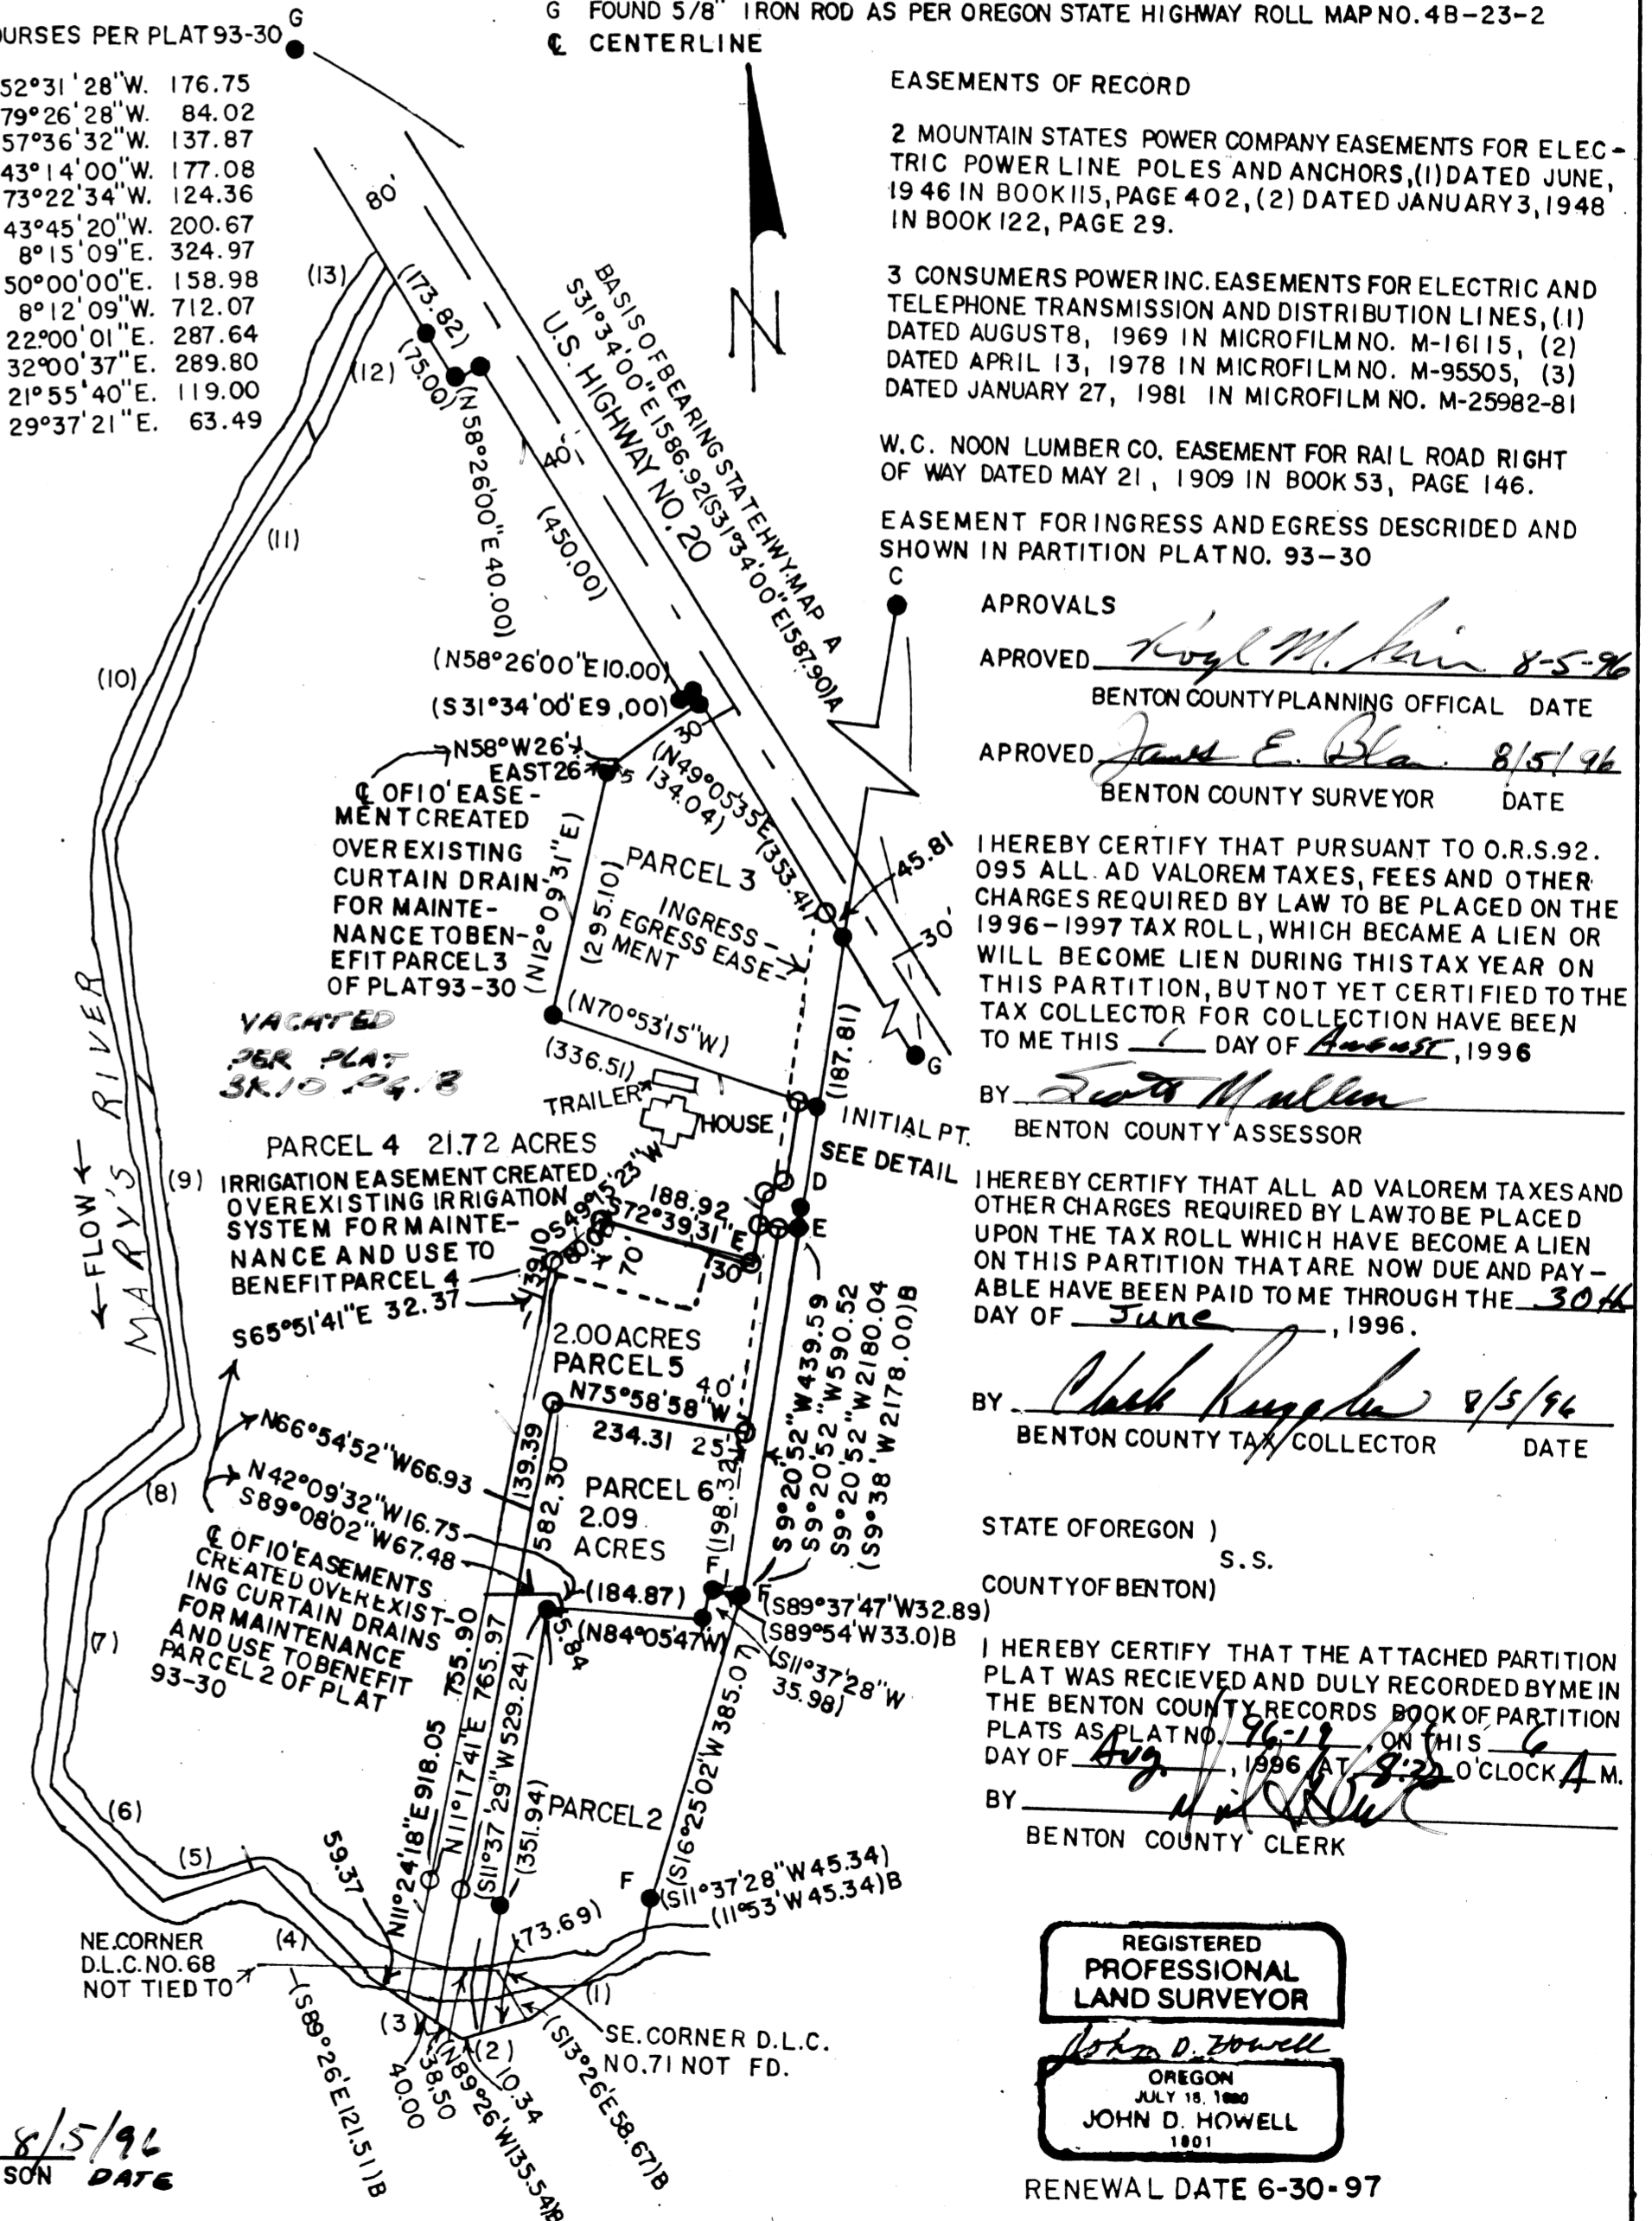 G FOUND 5/8" IRON ROD AS PER OREGON STATE HIGHWAY ROLL MAP NO. 4B-23-2
℄ CENTERLINE
OURSES PER PLAT 93-30
G
52°31'28"W. 176.75
79°26'28"W. 84.02
57°36'32"W. 137.87
43°14'00"W. 177.08
73°22'34"W. 124.36
43°45'20"W. 200.67
8°15'09"E. 324.97
50°00'00"E. 158.98
8°12'09"W. 712.07
22°00'01"E. 287.64
32°00'37"E. 289.80
21°55'40"E. 119.00
29°37'21"E. 63.49
EASEMENTS OF RECORD
2 MOUNTAIN STATES POWER COMPANY EASEMENTS FOR ELEC-
TRIC POWER LINE POLES AND ANCHORS, (1) DATED JUNE,
1946 IN BOOK 115, PAGE 402, (2) DATED JANUARY 3, 1948
IN BOOK 122, PAGE 29.
3 CONSUMERS POWER INC. EASEMENTS FOR ELECTRIC AND
TELEPHONE TRANSMISSION AND DISTRIBUTION LINES, (1)
DATED AUGUST 8, 1969 IN MICROFILM NO. M-16115, (2)
DATED APRIL 13, 1978 IN MICROFILM NO. M-95505, (3)
DATED JANUARY 27, 1981 IN MICROFILM NO. M-25982-81
W.C. NOON LUMBER CO. EASEMENT FOR RAIL ROAD RIGHT
OF WAY DATED MAY 21, 1909 IN BOOK 53, PAGE 146.
EASEMENT FOR INGRESS AND EGRESS DESCRIDED AND
SHOWN IN PARTITION PLAT NO. 93-30
APROVALS
APROVED 8-5-96
BENTON COUNTY PLANNING OFFICAL DATE
APROVED James E. Blair 8/5/96
BENTON COUNTY SURVEYOR DATE
I HEREBY CERTIFY THAT PURSUANT TO O.R.S. 92.
095 ALL AD VALOREM TAXES, FEES AND OTHER
CHARGES REQUIRED BY LAW TO BE PLACED ON THE
1996-1997 TAX ROLL, WHICH BECAME A LIEN OR
WILL BECOME LIEN DURING THIS TAX YEAR ON
THIS PARTITION, BUT NOT YET CERTIFIED TO THE
TAX COLLECTOR FOR COLLECTION HAVE BEEN
TO ME THIS 1 DAY OF August, 1996
BY Scott Mullen
BENTON COUNTY ASSESSOR
I HEREBY CERTIFY THAT ALL AD VALOREM TAXES AND
OTHER CHARGES REQUIRED BY LAW TO BE PLACED
UPON THE TAX ROLL WHICH HAVE BECOME A LIEN
ON THIS PARTITION THAT ARE NOW DUE AND PAY-
ABLE HAVE BEEN PAID TO ME THROUGH THE 30th
DAY OF June, 1996.
BY 8/5/96
BENTON COUNTY TAX COLLECTOR DATE
STATE OF OREGON )
S.S.
COUNTY OF BENTON)
I HEREBY CERTIFY THAT THE ATTACHED PARTITION
PLAT WAS RECIEVED AND DULY RECORDED BY ME IN
THE BENTON COUNTY RECORDS BOOK OF PARTITION
PLATS AS PLAT NO. 96-19, ON THIS 6
DAY OF Aug, 1996 AT O'CLOCK A M.
BY
BENTON COUNTY CLERK
REGISTERED
PROFESSIONAL
LAND SURVEYOR
John D. Howell
OREGON
JULY 18, 1980
JOHN D. HOWELL
1901
RENEWAL DATE 6-30-97
N
80'
(13)
(12)
(11)
(10)
(173.82)
(75.00)
(N58°26'00"E 40.00)
40'
(450.00)
U.S. HIGHWAY NO. 20
BASIS OF BEARING STATE HWY. MAP A
S31°34'00"E 1586.92 (S31°34'00"E 1587.90)A
C
(N58°26'00"E 10.00)
(S31°34'00"E 9.00)
30
N58°W26'
EAST 26
5
(N49°05'35"E
134.04)
(353.41)
45.81
30'
G
℄ OF 10' EASE-
MENT CREATED
OVER EXISTING
CURTAIN DRAIN
FOR MAINTE-
NANCE TO BEN-
EFIT PARCEL 3
OF PLAT 93-30
(N12°09'31"E)
(295.10)
PARCEL 3
INGRESS-
EGRESS EASE-
MENT
(N70°53'15"W)
(336.51)
(187.81)
VACATED
PER PLAT
BK10 PG. 8
TRAILER
HOUSE
INITIAL PT.
SEE DETAIL
D
E
PARCEL 4 21.72 ACRES
(9)
IRRIGATION EASEMENT CREATED
OVER EXISTING IRRIGATION
SYSTEM FOR MAINTE-
NANCE AND USE TO
BENEFIT PARCEL 4
←FLOW←
MARY'S RIVER
S49°15'23"W
188.92
S72°39'31"E
70'
30
139.10
S65°51'41"E 32.37
2.00 ACRES
PARCEL 5
40'
N75°58'58"W
234.31 25'
S9°20'52"W 439.59
S9°20'52"W 590.52
S9°20'52"W 2180.04
(S9°38'W 2178.00)B
N66°54'52"W 66.93
N42°09'32"W 16.75
S89°08'02"W 67.48
139.39
582.30
PARCEL 6
2.09
ACRES
(198.32)
(8)
(7)
(6)
(5)
℄ OF 10' EASEMENTS
CREATED OVER EXIST-
ING CURTAIN DRAINS
FOR MAINTENANCE
AND USE TO BENEFIT
PARCEL 2 OF PLAT
93-30
F
F
(184.87)
(N84°05'47"W)
5.84
(S89°37'47"W 32.89)
(S89°54'W 33.0)B
(S11°37'28"W
35.98)
755.90
N11°17'41"E 765.97
N11°24'18"E 918.05
(S11°37'29"W 529.24)
(351.94)
PARCEL 2
(S16°25'02"W 385.07)
F
(S11°37'28"W 45.34)
(11°53'W 45.34)B
59.37
(73.69)
NE. CORNER
D.L.C. NO. 68
NOT TIED TO
(4)
(3)
(2)
(1)
SE. CORNER D.L.C.
NO. 71 NOT FD.
(S89°26'E 121.51)B
40.00
38.50
(N89°26'W 135.54)B
10.34
(S13°26'E 58.67)B
8/5/96
SON DATE